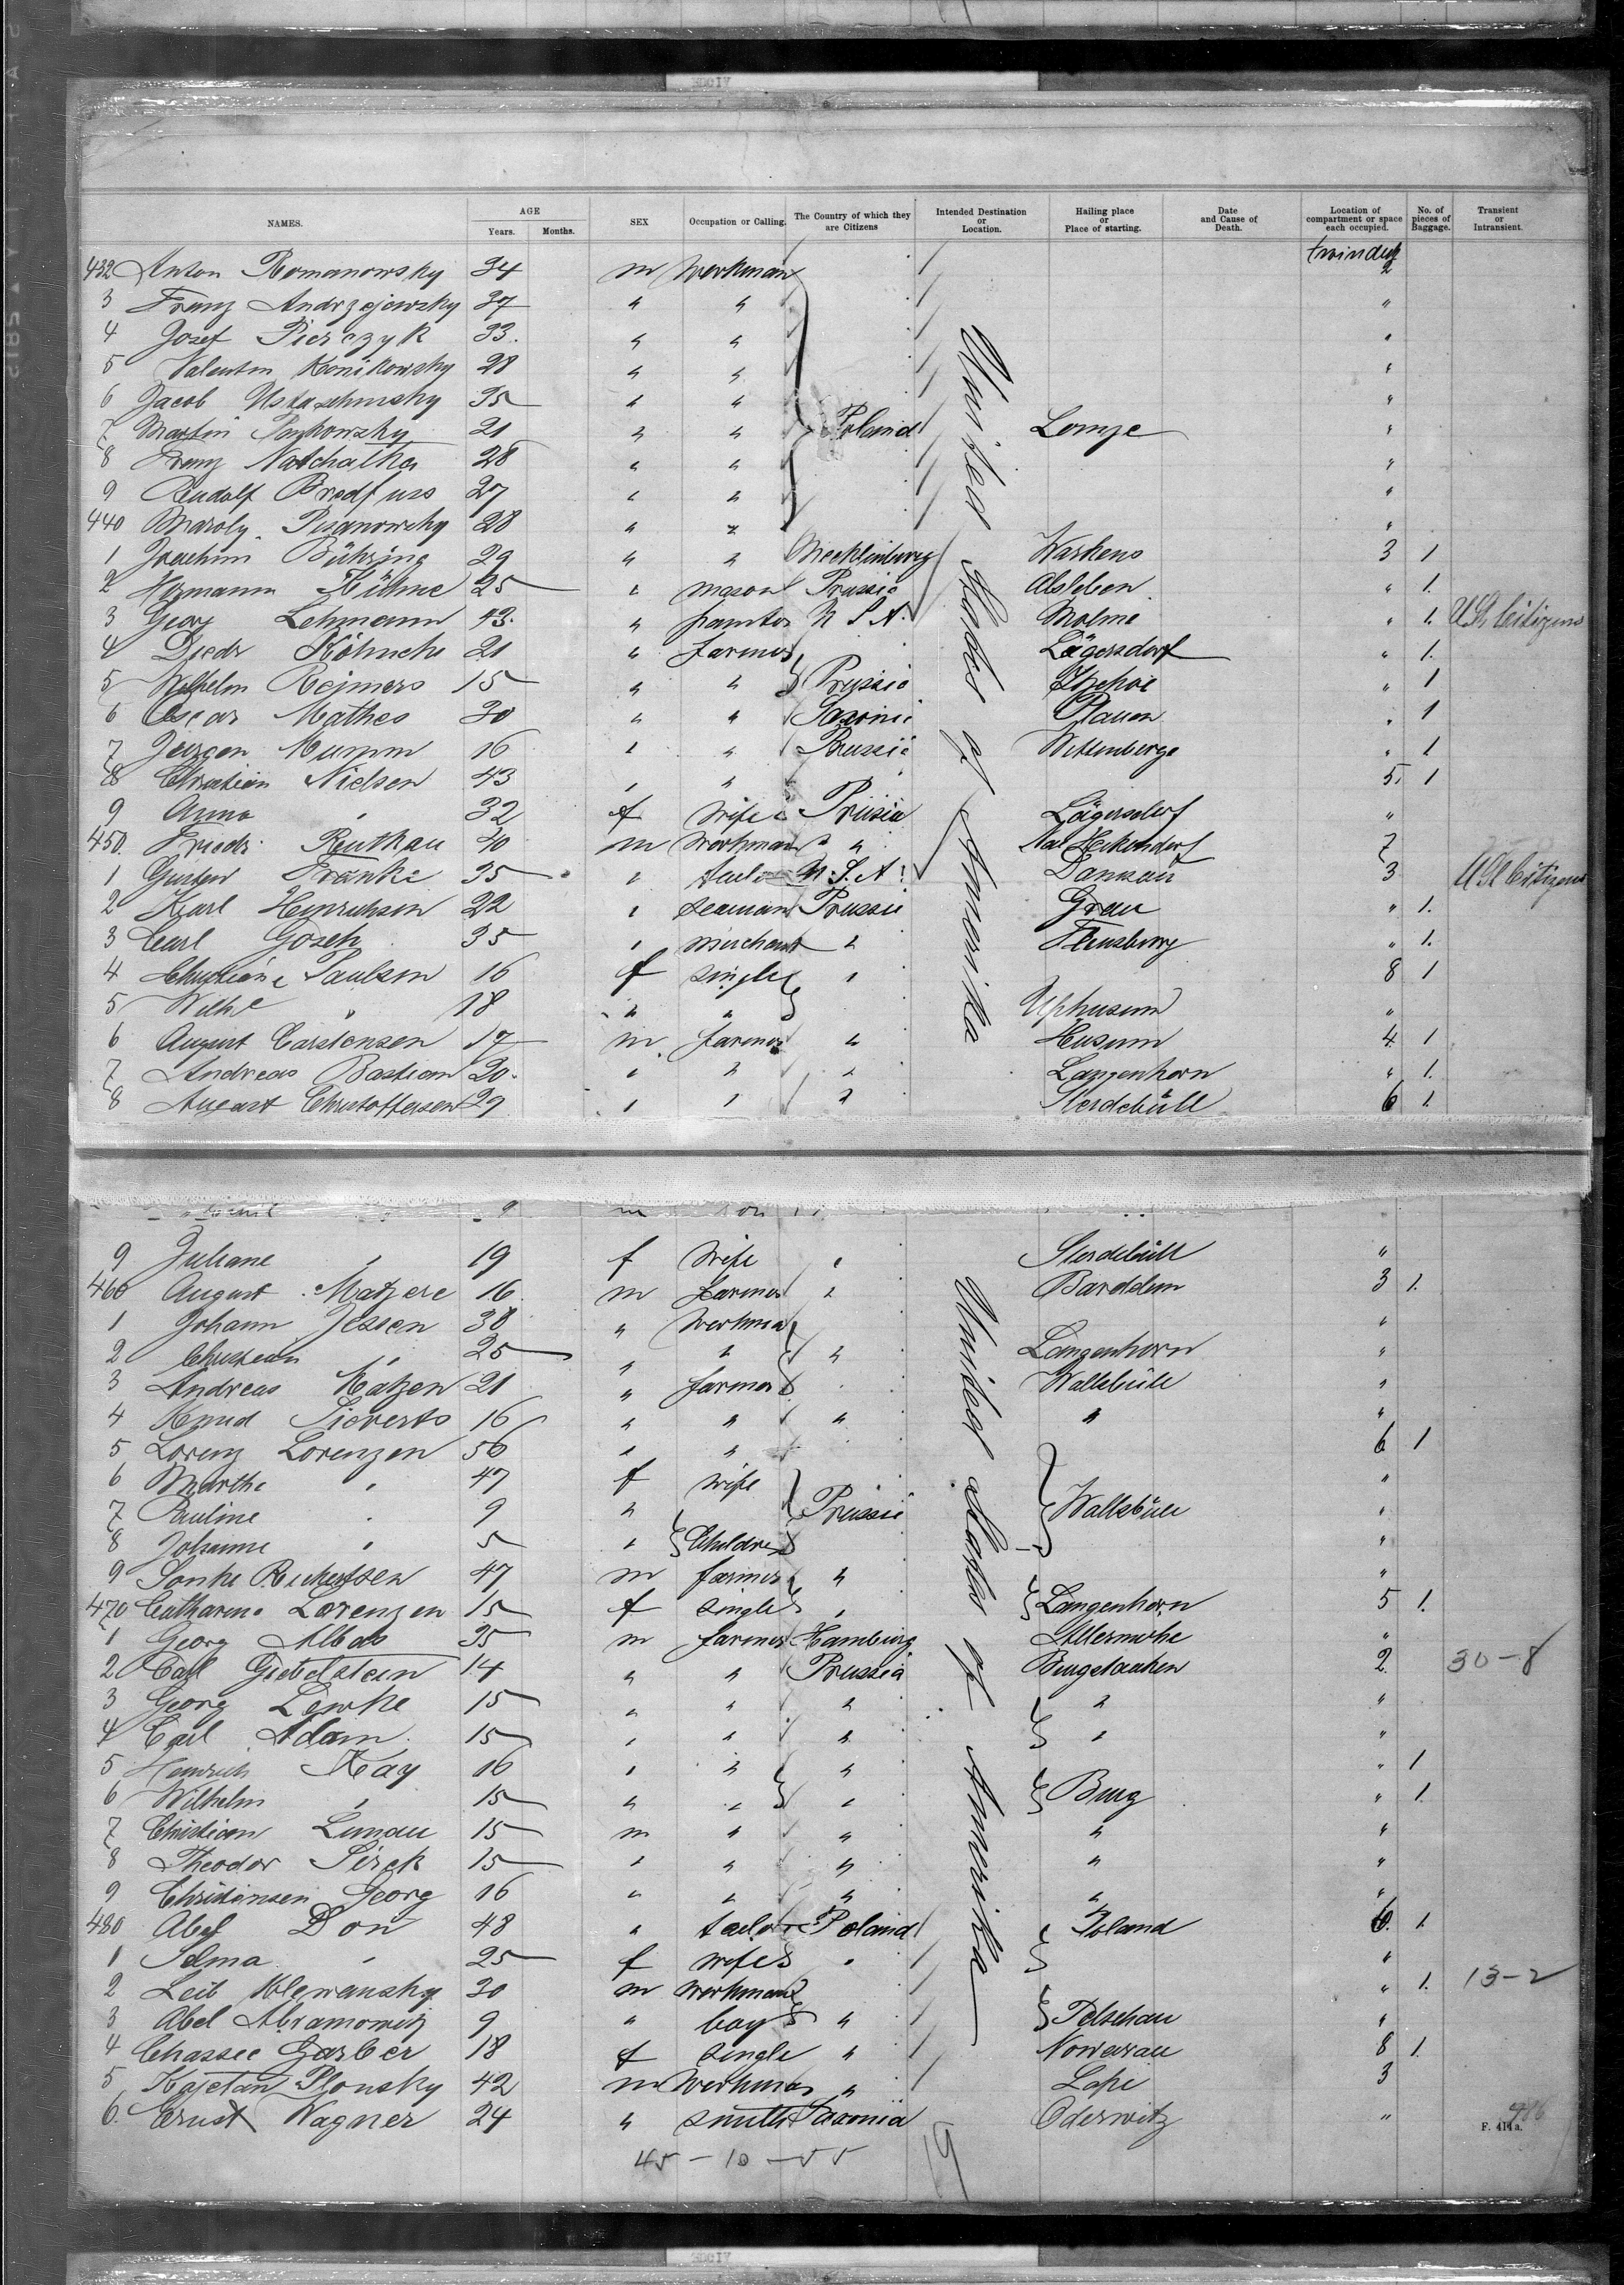 NAMES. AGE Years. Months. SEX Occupation or Calling. The Country of which they are Citizens Intended Destination or Location. Hailing place or Place of starting. Date and Cause of Death. Location of compartment or space each occupied. No. of pieces of Baggage. Transient or Intransient.
432 Anton Romanowsky 34 m workman 2
3 Franz Andrzejewsky 37 " " "
4 Josef Pierczyk 33. " " "
5 Valentin Konikowsky 28 " " "
6 Jacob 35 " " "
7 Martin 21 " " Poland Lomze "
8 Franz Natchalka 28 " " "
9 Rudolf Bredfuss 27 " " "
440 Pisanowsky 28 " " "
1 Joachim Bühring 29 " " Mecklenburg 3 1
2 Hermann Kühne 25 " mason Prussia Alsleben " 1.
3 Georg Lehmann 43. " painter U S A. " 1. U.S. Citizens
4 Diedr 21 " farmer Lägersdorf " 1.
5 Wilhelm Reimers 15 " " Prussia Itzehoe " 1
6 Oscar Mathes 30 " " Saxonie Plauen " 1
7 Jürgen Mumm 16 " " Prussia Wittenberge " 1
8 Christian Nielsen 43 " " 5. 1
9 Anna " 32 f wife Prüsia Lägersdorf "
450. Friedr. 40 m workman " 7
1 Gustav Franke 35 " U.S.A. 3 U.S. Citizens
2 Karl Hinrichsen 22 " seaman Prussia " 1.
3 Carl Gosch 35 " merchant " Flensburg " 1.
4 Christine Paulsen 16 f single " 8 1
5 " 18 " " Uphusum "
6 August Carstensen 17 m farmer " Husum 4 1
7 Andreas Bastian 20. " " " Langenhorn " 1.
8 August Christoffersen 29 " " " Sterdebüll 6 1.
United States of Amerika
9 Juliane " 19 f wife " Sterdebüll "
460 August 16 m farmer " 3 1.
1 Johann Jessen 38 " workman "
2 Christian " 25 " " " Langenhorn "
3 Andreas 21 " farmer Wallsbüll "
4 Knud Sieverts 16 " " " " "
5 Lorenz Lorenzen 56 " " 6 1
6 Marthe " 47 f wife "
7 Pauline " 9 " Prussia Wallsbüll "
8 Johanne " 5 " Children "
9 Sönke 47 m farmer " "
470 Catharine Lorenzen 15 f single " Langenhorn 5 1.
1 Georg Albers 35 m farmer Hamburg "
2 Carl Giebelstein 14 " " Prussia Burgstaaken 2. 30-8
3 Georg Lewke 15 " " " " "
4 Carl Adam 15 " " " " "
5 Heinrich Kay 16 " " " " 1
6 Wilhelm " 15 " " " Burg " 1.
7 Christian Lunau 15 m " " " "
8 Theodor Sirck 15 " " " " "
9 Christensen Georg 16 " " " " "
480 Abel Don 48 " tailor Poland Poland 6. 1.
1 Selma " 25 f wife " "
2 Leib 30 m workman " 1. 13-2
3 Abel Abramowitz 9 " boy " "
4 Chassee Garber 18 f single " 8 1.
5 Kajetan Plonsky 42 m workman " 3
6. Ernst Wagner 24 " smith Saxonia Oderwitz "
United States of Amerika
45-10-55
F. 414a.